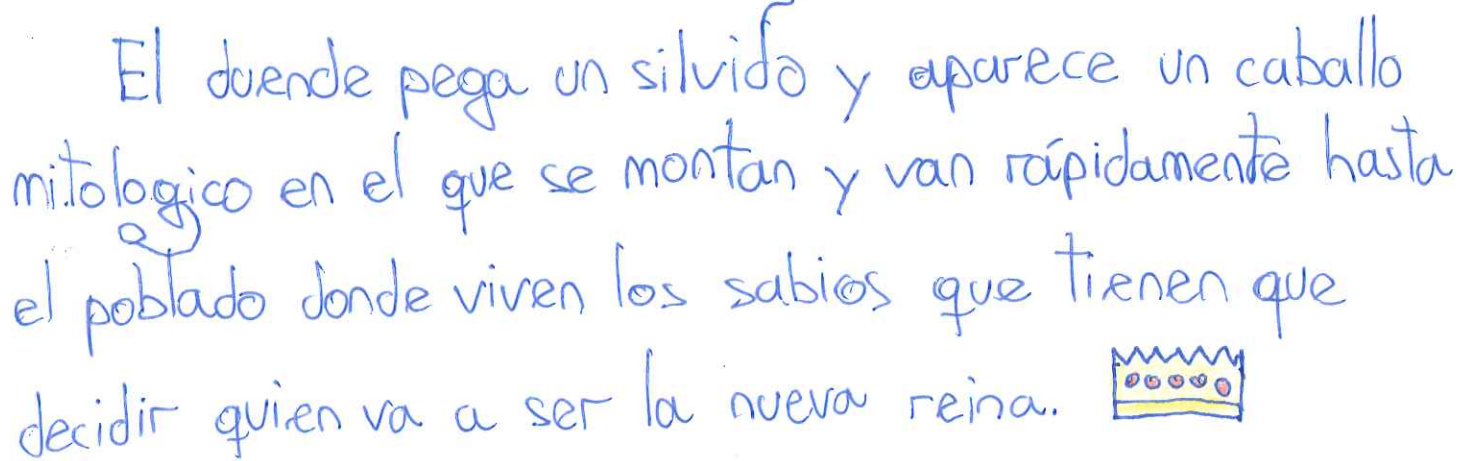 El duende pega un silvido y aparece un caballo
mitologico en el que se montan y van rápidamente hasta
el poblado donde viven los sabios que tienen que
decidir quien va a ser la nueva reina.